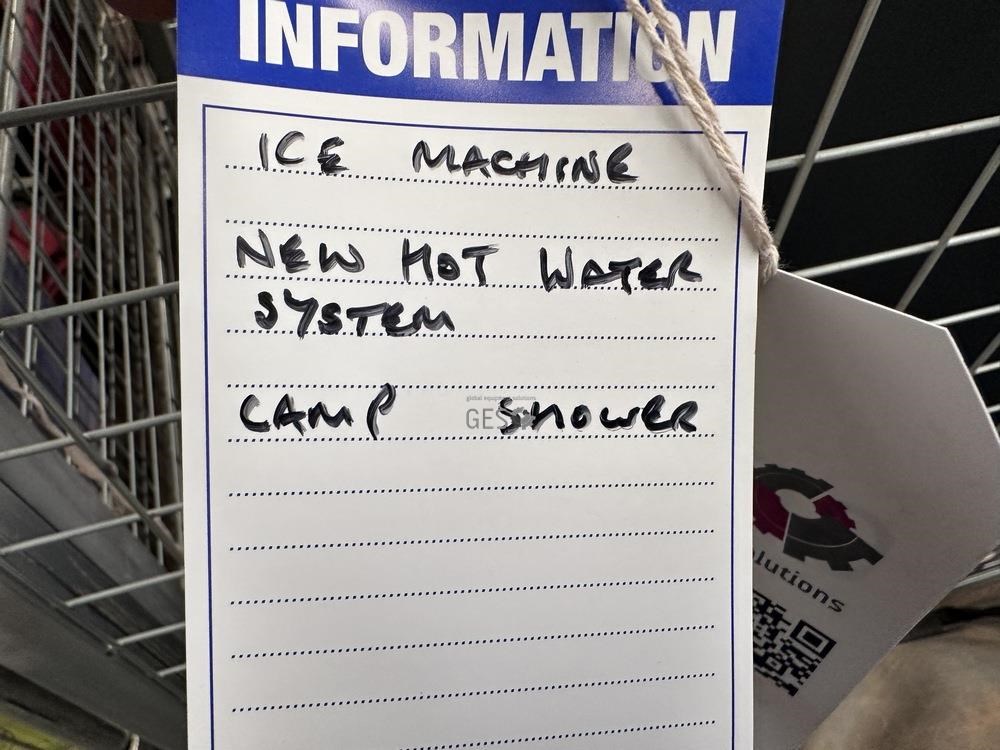 INFORMATION
ICE MACHINE
NEW HOT WATER
SYSTEM
CAMP SHOWER
global equipment solutions
GES
olutions